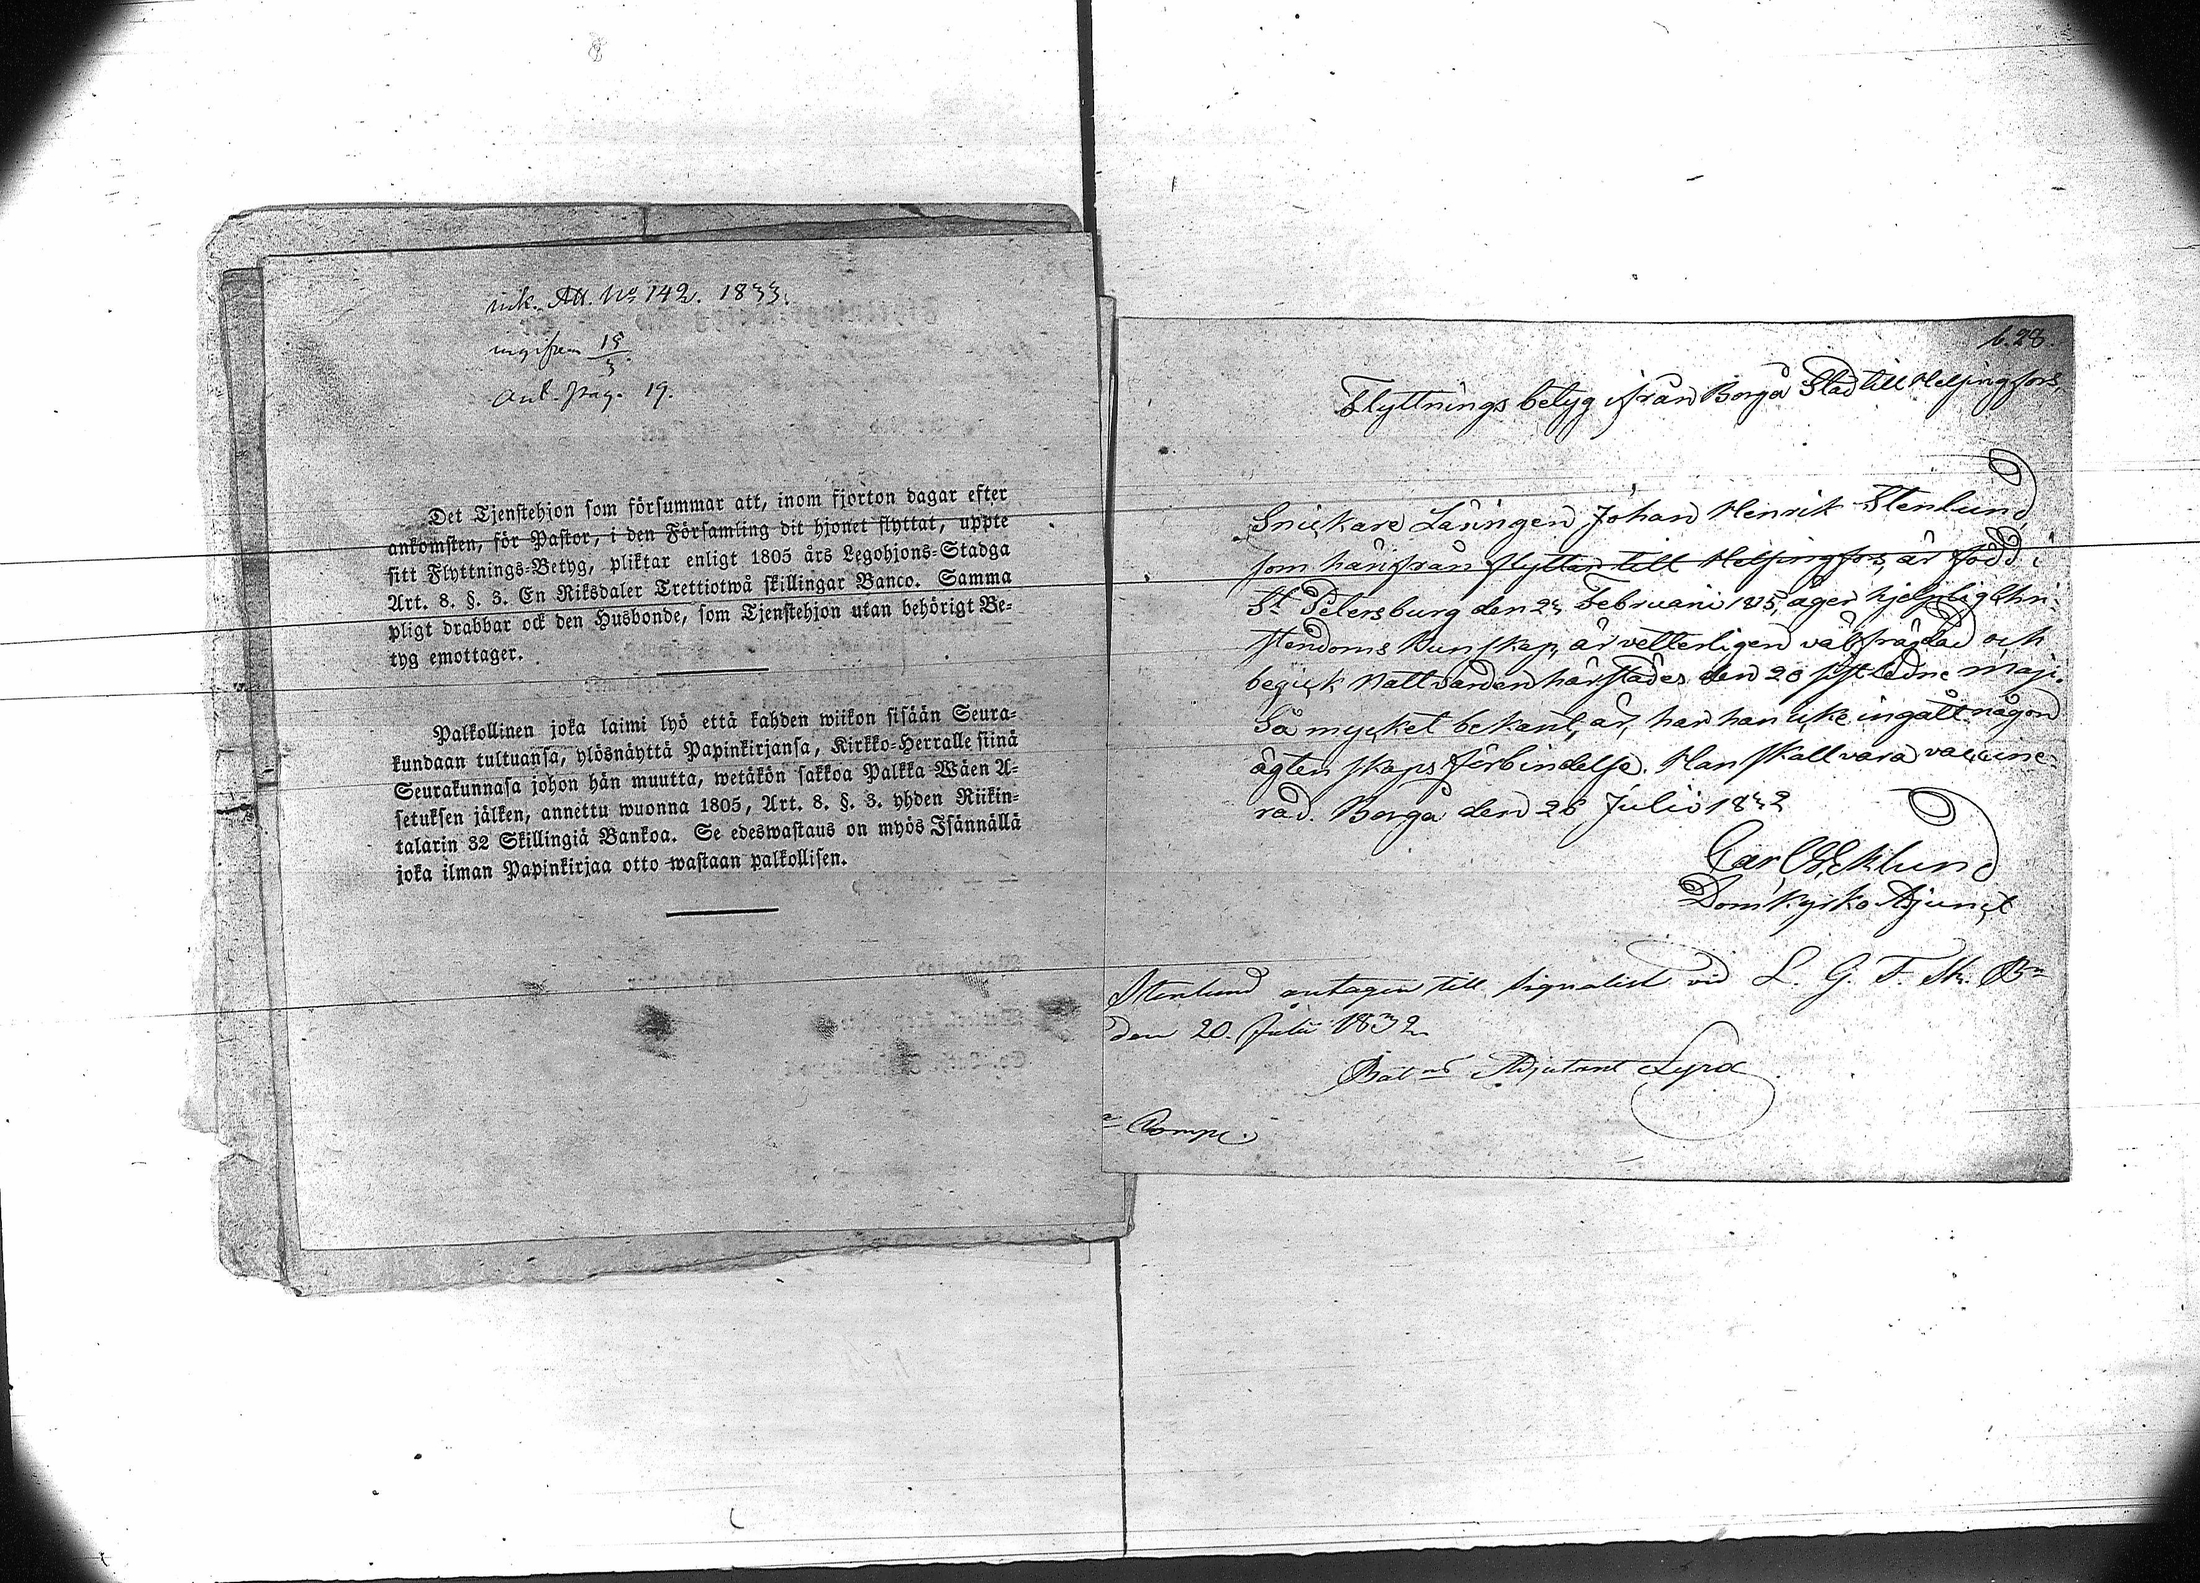 ink. Att. No 142. 1833.
ingifven 15/3.
Ant. pag. 19.
Det Tjenstehjon som försummar att, inom fjorton dagar efter
ankomsten, för Pastor, i den Församling dit hjonet flyttat, uppte
sitt Flyttnings-Betyg, pliktar enligt 1805 års Legohjons-Stadga
Art. 8. §. 3. En Riksdaler Trettiotwå skillingar Banco. Samma
pligt drabbar ock den Husbonde, som Tjenstehjon utan behörigt Be-
tyg emottager.
Palkollinen joka laimi lyö että kahden wiikon sisään Seura-
kundaan tultuansa, ylösnäyttä Papinkirjansa, Kirkko-Herralle siinä
Seurakunnasa johon hän muutta, wetäkön sakkoa Palkka Wäen A-
setuksen jälken, annettu wuonna 1805, Art. 8. §. 3. yhden Riikin-
talarin 32 Skillingiä Bankoa. Se edeswastaus on myös Isännällä
joka ilman Papinkirjaa otto wastaan palkollisen.
b. 28.
Flyttnings betyg ifrån Borgå Stad till Helsingfors
Snickare Lärlingen Johan Henrik Stenlund
som härifrån flyttar till Helsingfors, är född i
St Petersburg den Februari 1815, äger hjelplig Chri-
stendoms Kunskap, är vetterligen välfrägdad och
begick Nattvarden härstädes den 20 sistledne Maji.
Så mycket bekant är, har han icke ingått någon
ägtenskaps förbindelse. Han skall vara vaccine-
rad. Borgå den 26 Julii 1832
Carl Eklund
Domkyrko Adjunct
Stenlund antagen till Signalist vid L. G. F. Sk. Bn
den 20. Julii 1832
Adjutant
Comp.